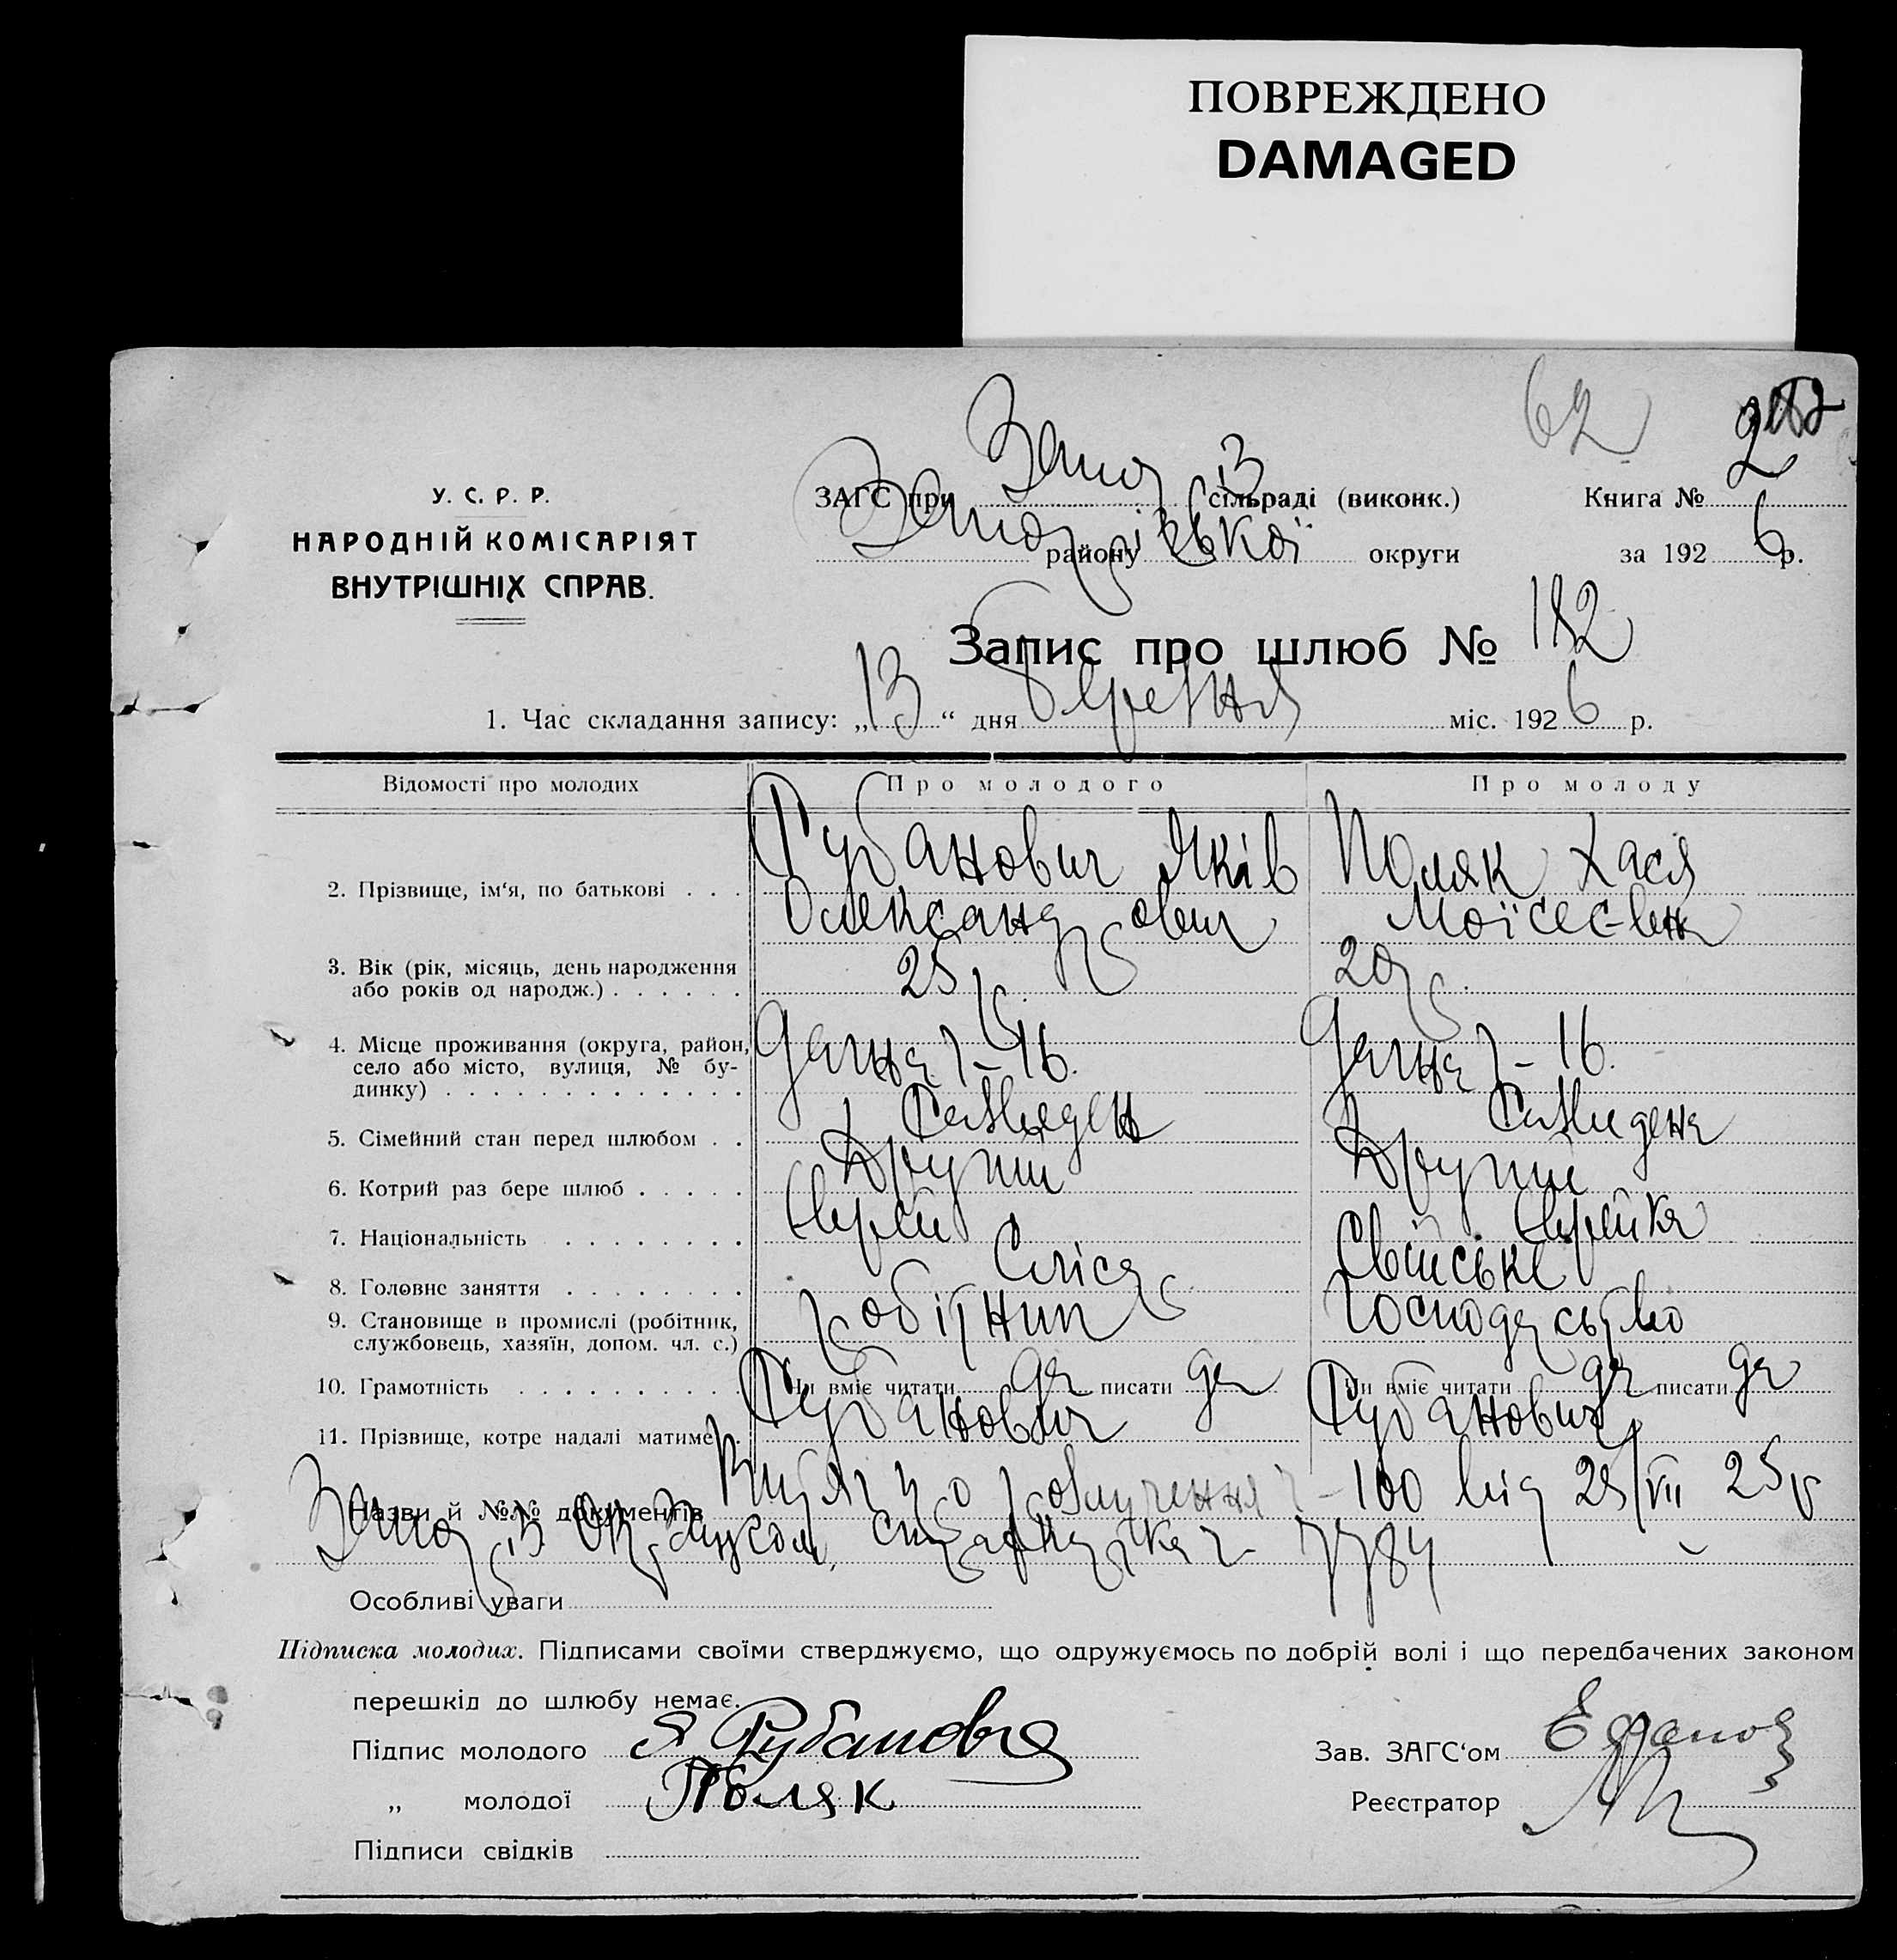 ПОВРЕЖДЕНО
DAMAGED
62
У. С. Р. Р.
НАРОДНІЙ КОМІСАРІЯТ
ВНУТРІШНІХ СПРАВ.
ЗАГС при Запоріз сільраді (виконк.) Книга № 2
Запорізької району округи за 1926 р.
Запис про шлюб № 182
1. Час складання запису: „13“ дня березня міс. 1926 р.
Відомості про молодих Про молодого Про молоду
2. Прізвище, ім‘я, по батькові . . . Рубанович Яків Поляк Хася
Олександрович Моїсеєвна
3. Вік (рік, місяць, день народження 25 р. 20 р.
або років од народж.) . . . . . .
4. Місце проживання (округа, район, 16. 16.
село або місто, вулиця, № бу-
динку) . . . . . . . . . . . . .
5. Сімейний стан перед шлюбом . .
6. Котрий раз бере шлюб . . . . . Другий Другий
7. Національність . . . . . . . . Еврей Еврейка
8. Головне заняття . . . . . . . . Слюсар Свійське
9. Становище в промислі (робітник, робітник господарство
службовець, хазяїн, допом. чл. с.)
10. Грамотність . . . . . . . . . . Чи вміє читати да писати да Чи вміє читати да писати да
11. Прізвище, котре надалі матиме . Рубанович Рубанович
Назви й №№ документів Витяг про розлучення № 100 від 25/VII 25 р
Запоріз. 7784
Особливі уваги
Підписка молодих. Підписами своїми стверджуємо, що одружуємось по добрій волі і що передбачених законом
перешкід до шлюбу немає.
Підпис молодого Я Рубанович Зав. ЗАГС‘ом
„ молодої Поляк Реєстратор
Підписи свідків